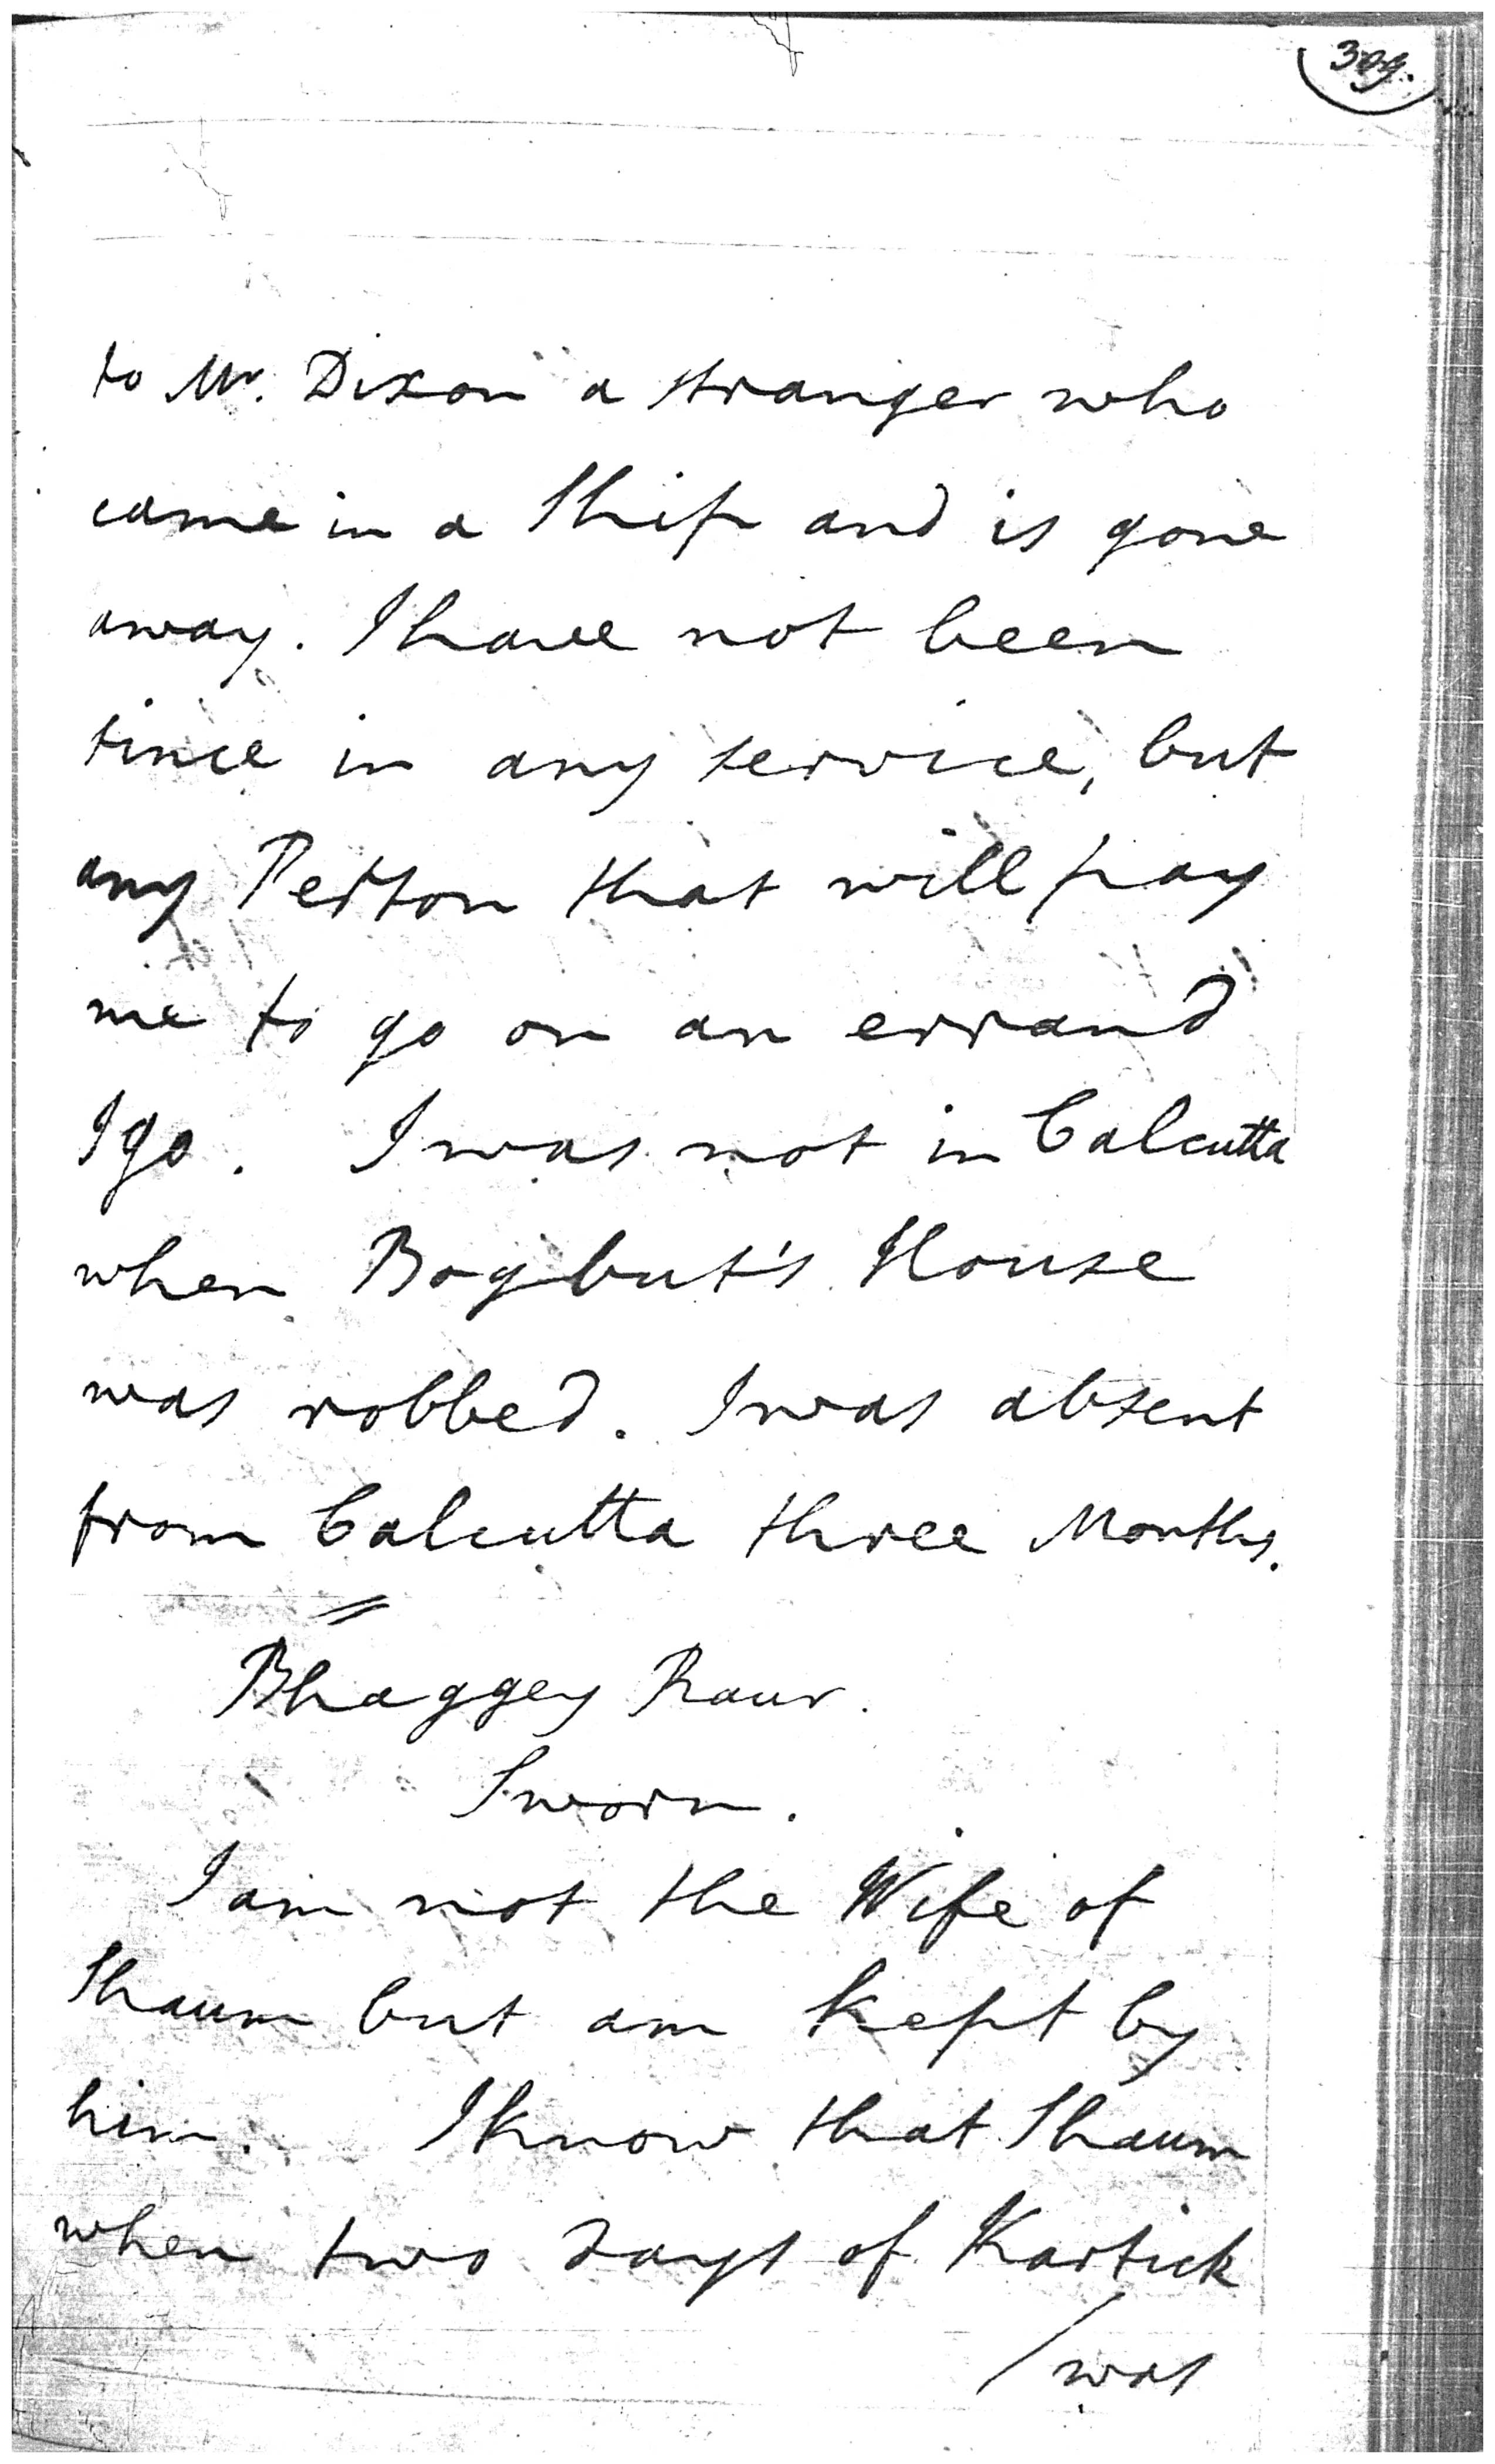 to Mr. Dixon a stranger who
came in a Ship and is gone
away. I have not been
since in any service, but
any Person that will pay
me to go on an errand
I go. I was not in Calcutta
when Bogbut's House
was robbed. I was absent
from Calcutta three Months.
Bhaggey Raur.
Sworn.
I am not the Wife of
Shaum but am kept by
him. I know that Shaum
when two days of Kartick
/was